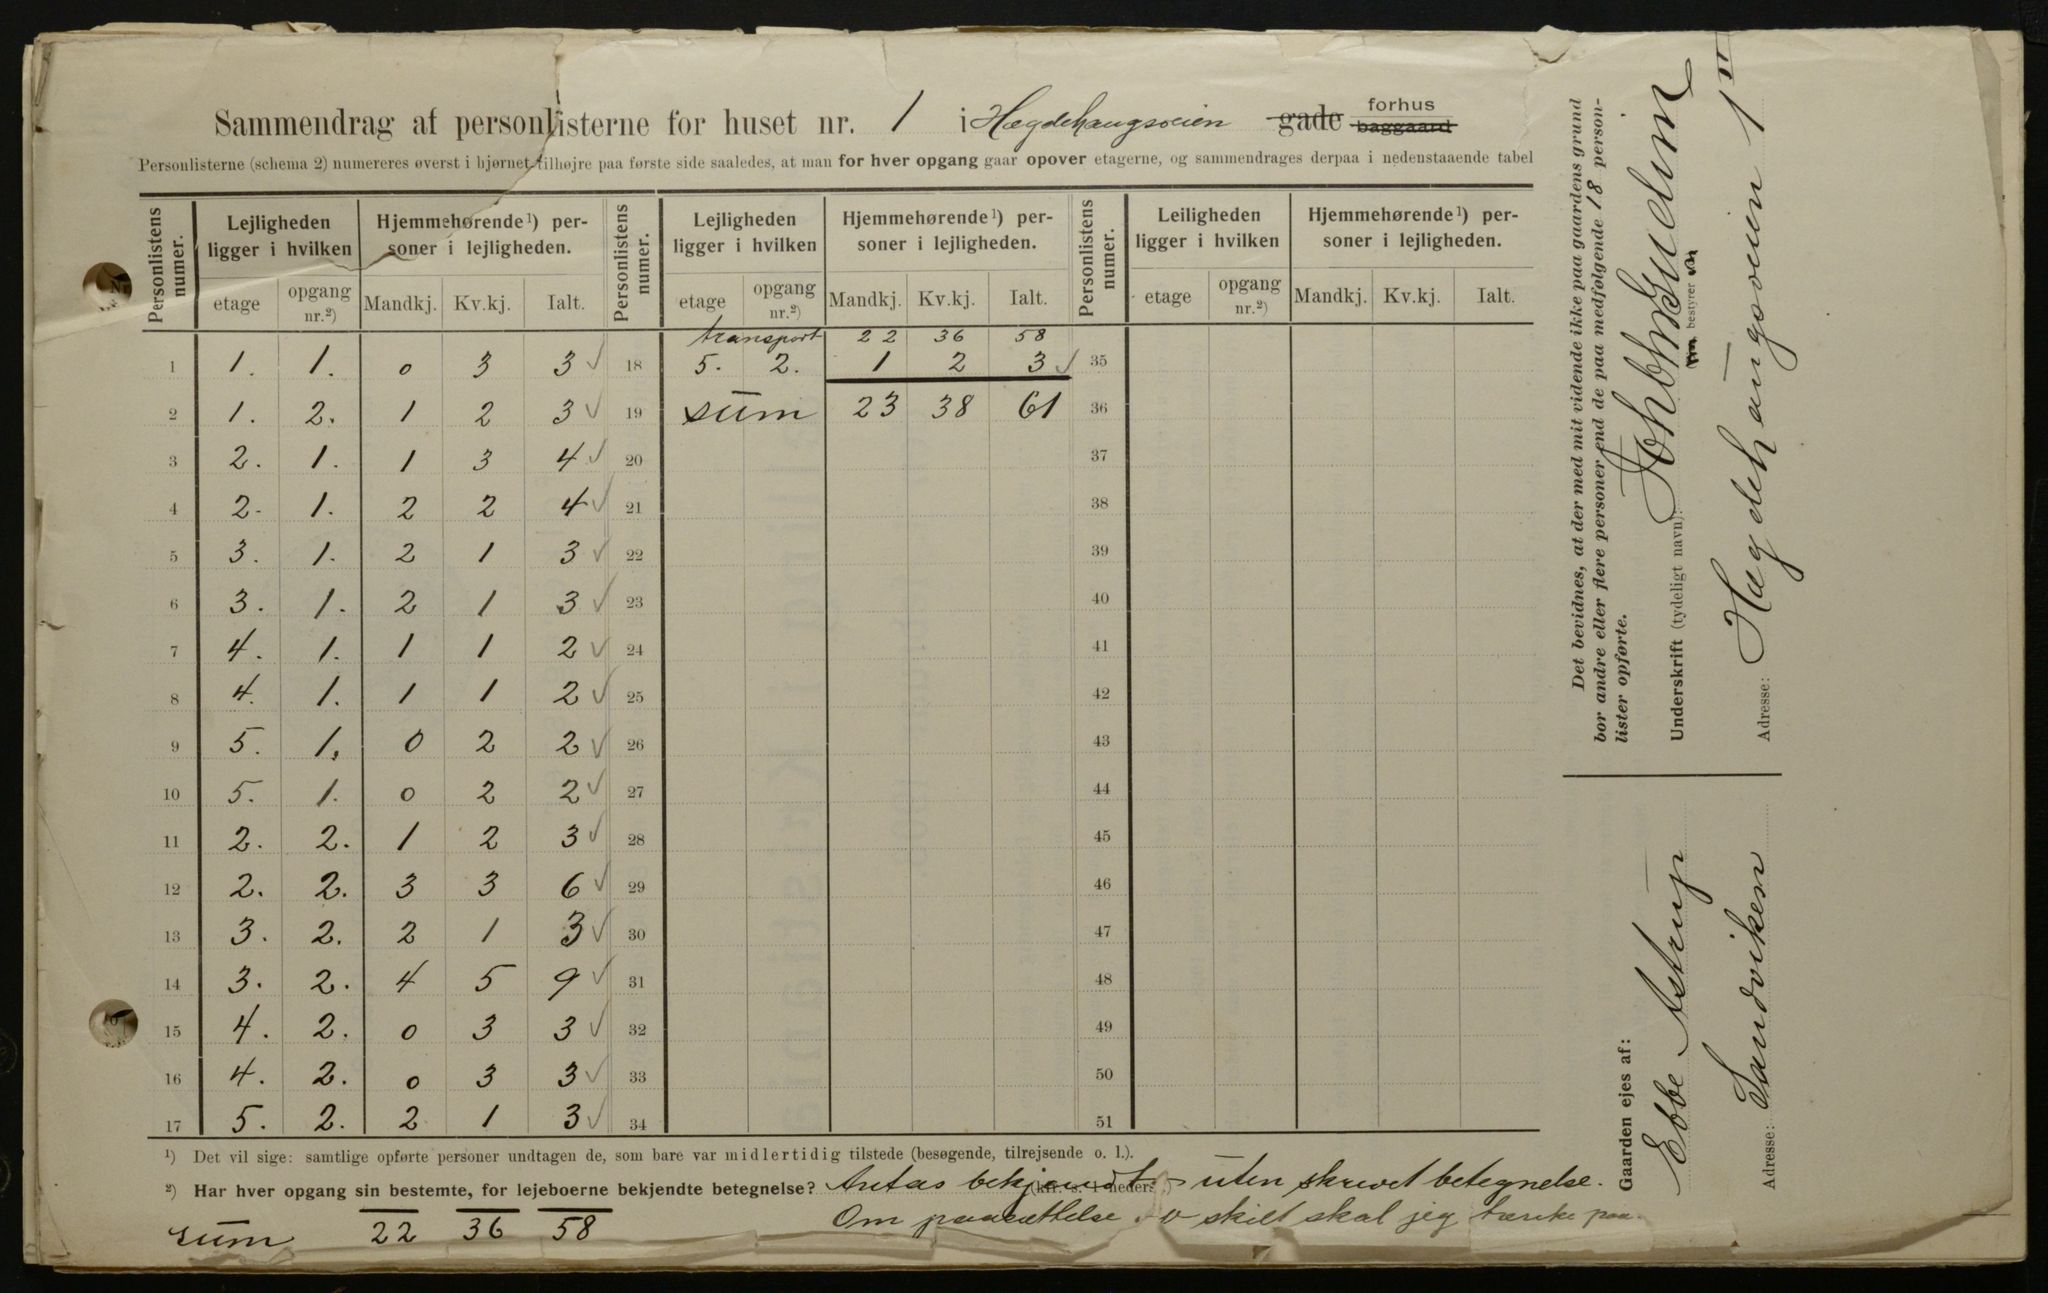 Sammendrag af personlisterne for huset nr. 1 i Hægdehaugsveien gade forhus baggaard
Personlisterne (schema 2) numereres øverst i hjørnet tilhøjre paa første side saaledes, at man for hver opgang gaar opover etagerne, og sammendrages derpaa i nedenstaaende tabel
Personlistens numer. Lejligheden ligger i hvilken Hjemmehørende¹) personer i lejligheden. Personlistens numer. Lejligheden ligger i hvilken Hjemmehørende¹) personer i lejligheden. Personlistens numer. Leiligheden ligger i hvilken Hjemmehørende¹) personer i lejligheden.
etage opgang nr.²) Mandkj. Kv.kj. Ialt. etage opgang nr.²) Mandkj. Kv.kj. Ialt. etage opgang nr.²) Mandkj. Kv.kj. Ialt.
transport 22 36 58
1 1. 1. 0 3 3 ✓ 18 5. 2. 1 2 3 ✓ 35
2 1. 2. 1 2 3 ✓ 19 sum 23 38 61 36
3 2. 1. 1 3 4 ✓ 20 37
4 2. 1. 2 2 4 ✓ 21 38
5 3. 1. 2 1 3 ✓ 22 39
6 3. 1. 2 1 3 ✓ 23 40
7 4. 1. 1 1 2 ✓ 24 41
8 4. 1. 1 1 2 ✓ 25 42
9 5. 1. 0 2 2 ✓ 26 43
10 5. 1. 0 2 2 ✓ 27 44
11 2. 2. 1 2 3 ✓ 28 45
12 2. 2. 3 3 6 ✓ 29 46
13 3. 2. 2 1 3 ✓ 30 47
14 3. 2. 4 5 9 ✓ 31 48
15 4. 2. 0 3 3 ✓ 32 49
16 4. 2. 0 3 3 ✓ 33 50
17 5. 2. 2 1 3 ✓ 34 51
¹) Det vil sige: samtlige opførte personer undtagen de, som bare var midlertidig tilstede (besøgende, tilrejsende o. l.).
²) Har hver opgang sin bestemte, for lejeboerne bekjendte betegnelse? Antas bekjendt - uten skrevet betegnelse.
sum 22 36 58 Om paasættelse skilt skal jeg tænke paa.
Det bevidnes, at der med mit vidende ikke paa gaardens grund
bor andre eller flere personer end de paa medfølgende 18 person-
lister opførte.
Underskrift (tydeligt navn):
bestyrer
Adresse: Hægdehaugsveien 1
Gaarden ejes af:
Ebbe Astrup
Adresse: Sandviken